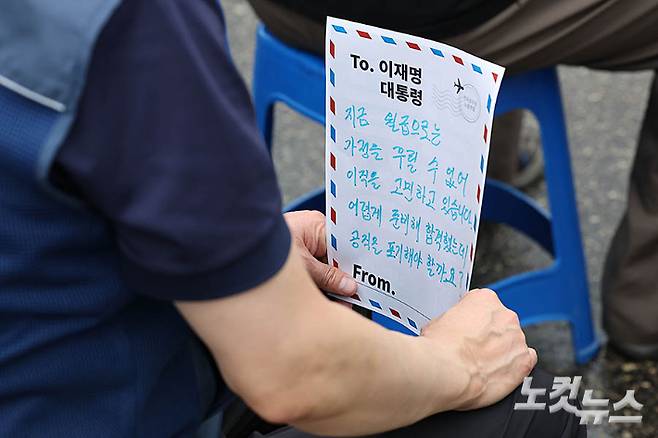 To. 이재명
대통령
지금 월급으로는
가정을 꾸릴 수 없어
이직을 고민하고 있습니다.
어렵게 준비해 합격했는데
공직을 포기해야 할까요?
From.
노컷뉴스